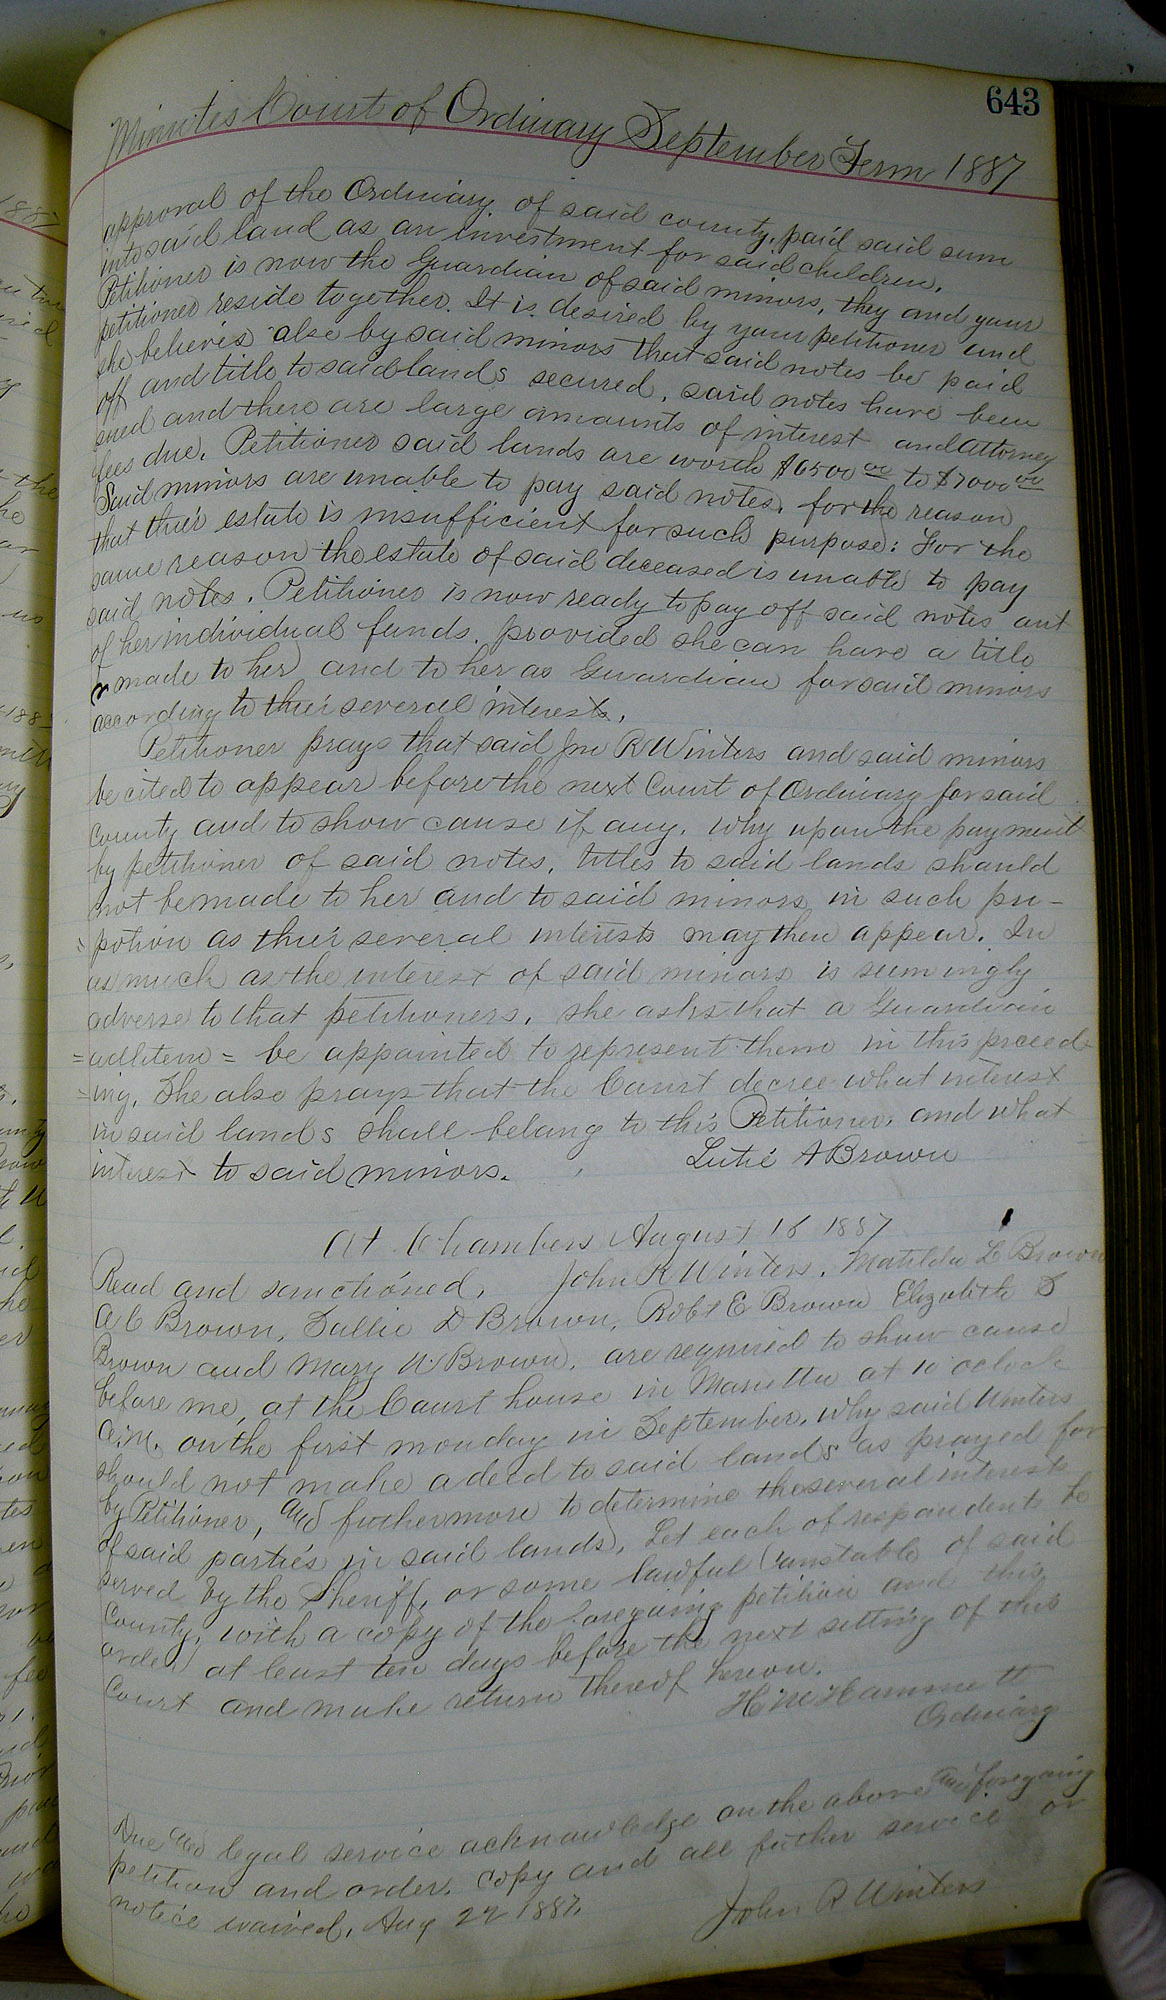 643
Minutes Court of Ordinary September Term 1887
approval of the Ordinary of said county, paid said sum
into said land as an investment for said children.
Petitioner is now the Guardian of said minors, they and your
petitioner reside together. It is desired by your petitioner and
she believes also by said minors that said notes be paid
off and title to said lands secured, said notes have been
sued and there are large amounts of interest and attorney
fees due. Petitioner said lands are worth $6500 00 to $7000 00
Said minors are unable to pay said notes, for the reason
that their estate is insufficient for such purpose: For the
same reason the estate of said deceased is unable to pay
said notes. Petitioner is now ready to pay off said notes out
of her individual funds, provided she can have a title
made to her and to her as Guardian for said minors
according to their several interests.
Petitioner prays that said Jno R Winters and said minors
be cited to appear before the next Court of Ordinary for said
County and to show cause if any, why upon the payment
by petitioner of said notes, titles to said lands should
not be made to her and to said minors in such pro-
potion as their several interests may then appear. In
as much as the interest of said minors is seemingly
adverse to that petitioners, she asks that a Guardian
=adlitem= be appointed to represent them in this proceed-
ing. She also prays that the Court decree what interest
in said lands shall belong to this Petitioner, and what
interest to said minors. Lutie A Brown
At Chambers August 16 1887
Read and sanctioned, John R Winters, Matilda L Brown
A C Brown, Sallie D Brown, Robt E Brown Elizabeth S
Brown and Mary W Brown, are required to show cause
before me, at the Court house in Marietta at 10 oclock
A.M. on the first monday in September, why said Winters
should not make a deed to said lands as prayed for
by Petitioner, and futhermore to determine the several interests
of said parties in said lands, Let each of respondents be
served by the Sheriff, or some lawful Constable of said
County, with a copy of the Foregoing petition and this
order at least ten days before the next sitting of this
Court and make return thereof hereon.
H M Hammett
Ordinary
Due and legal service acknowledge on the above and foregoing
petition and order. copy and all futher service or
notice waived, Aug 22 1887.
John R Winters